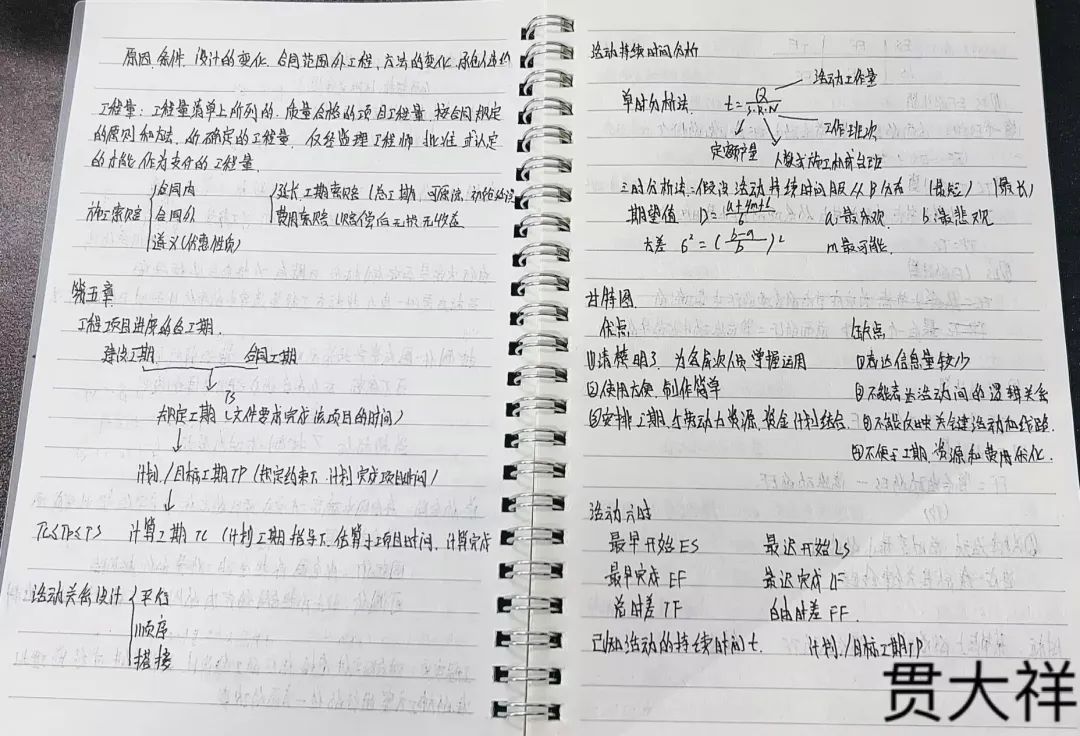 原因、条件、设计的变化、合同范围外工程、方法的变化、
工程量：工程量清单上所列的，质量合格的项目工程量，按合同规定
的原则和方法，所确定的工程量，仅经监理工程师批准或认定
的才能作为支付的工程量。
施工索赔
合同内
合同外
道义(优惠性质)
延长工期索赔
费用索赔
第五章
工程项目进度的各工期.
建设工期 合同工期
TS
规定工期（文件要求完成该项目的时间）
计划/目标工期TP（规定约束下，计划完成项目时间）
TC≤TP≤TS 计算工期TC（计划工期指导下，估算 项目时间，计算完成
活动关系设计
平行
顺序
搭接
活动持续时间分析
单时分析法 t=Q/S·R·N
活动工作量
工作班次
定额产量 人数或施工机械台班
三时分析法：假设活动持续时间服从β分布 (最短) (最长)
期望值 D=(a+4m+b)/6 a:最乐观 b:最悲观
方差 6²=(b-a/6)² m最可能.
甘特图.
优点 缺点
①清楚明了，为各层次人员掌握运用 ①表达信息量较少
②使用方便，制作简单 ②不能表达活动间的逻辑关系
③安排工期，与劳动力资源、资金计划结合. ③不能反映关键活动和线路.
④不便于工期、资源和费用优化.
活动六时
最早开始ES 最迟开始LS
最早完成EF 最迟完成LF
总时差TF 自由时差FF.
已知活动的持续时间t. 计划/目标工期TP
贯大祥